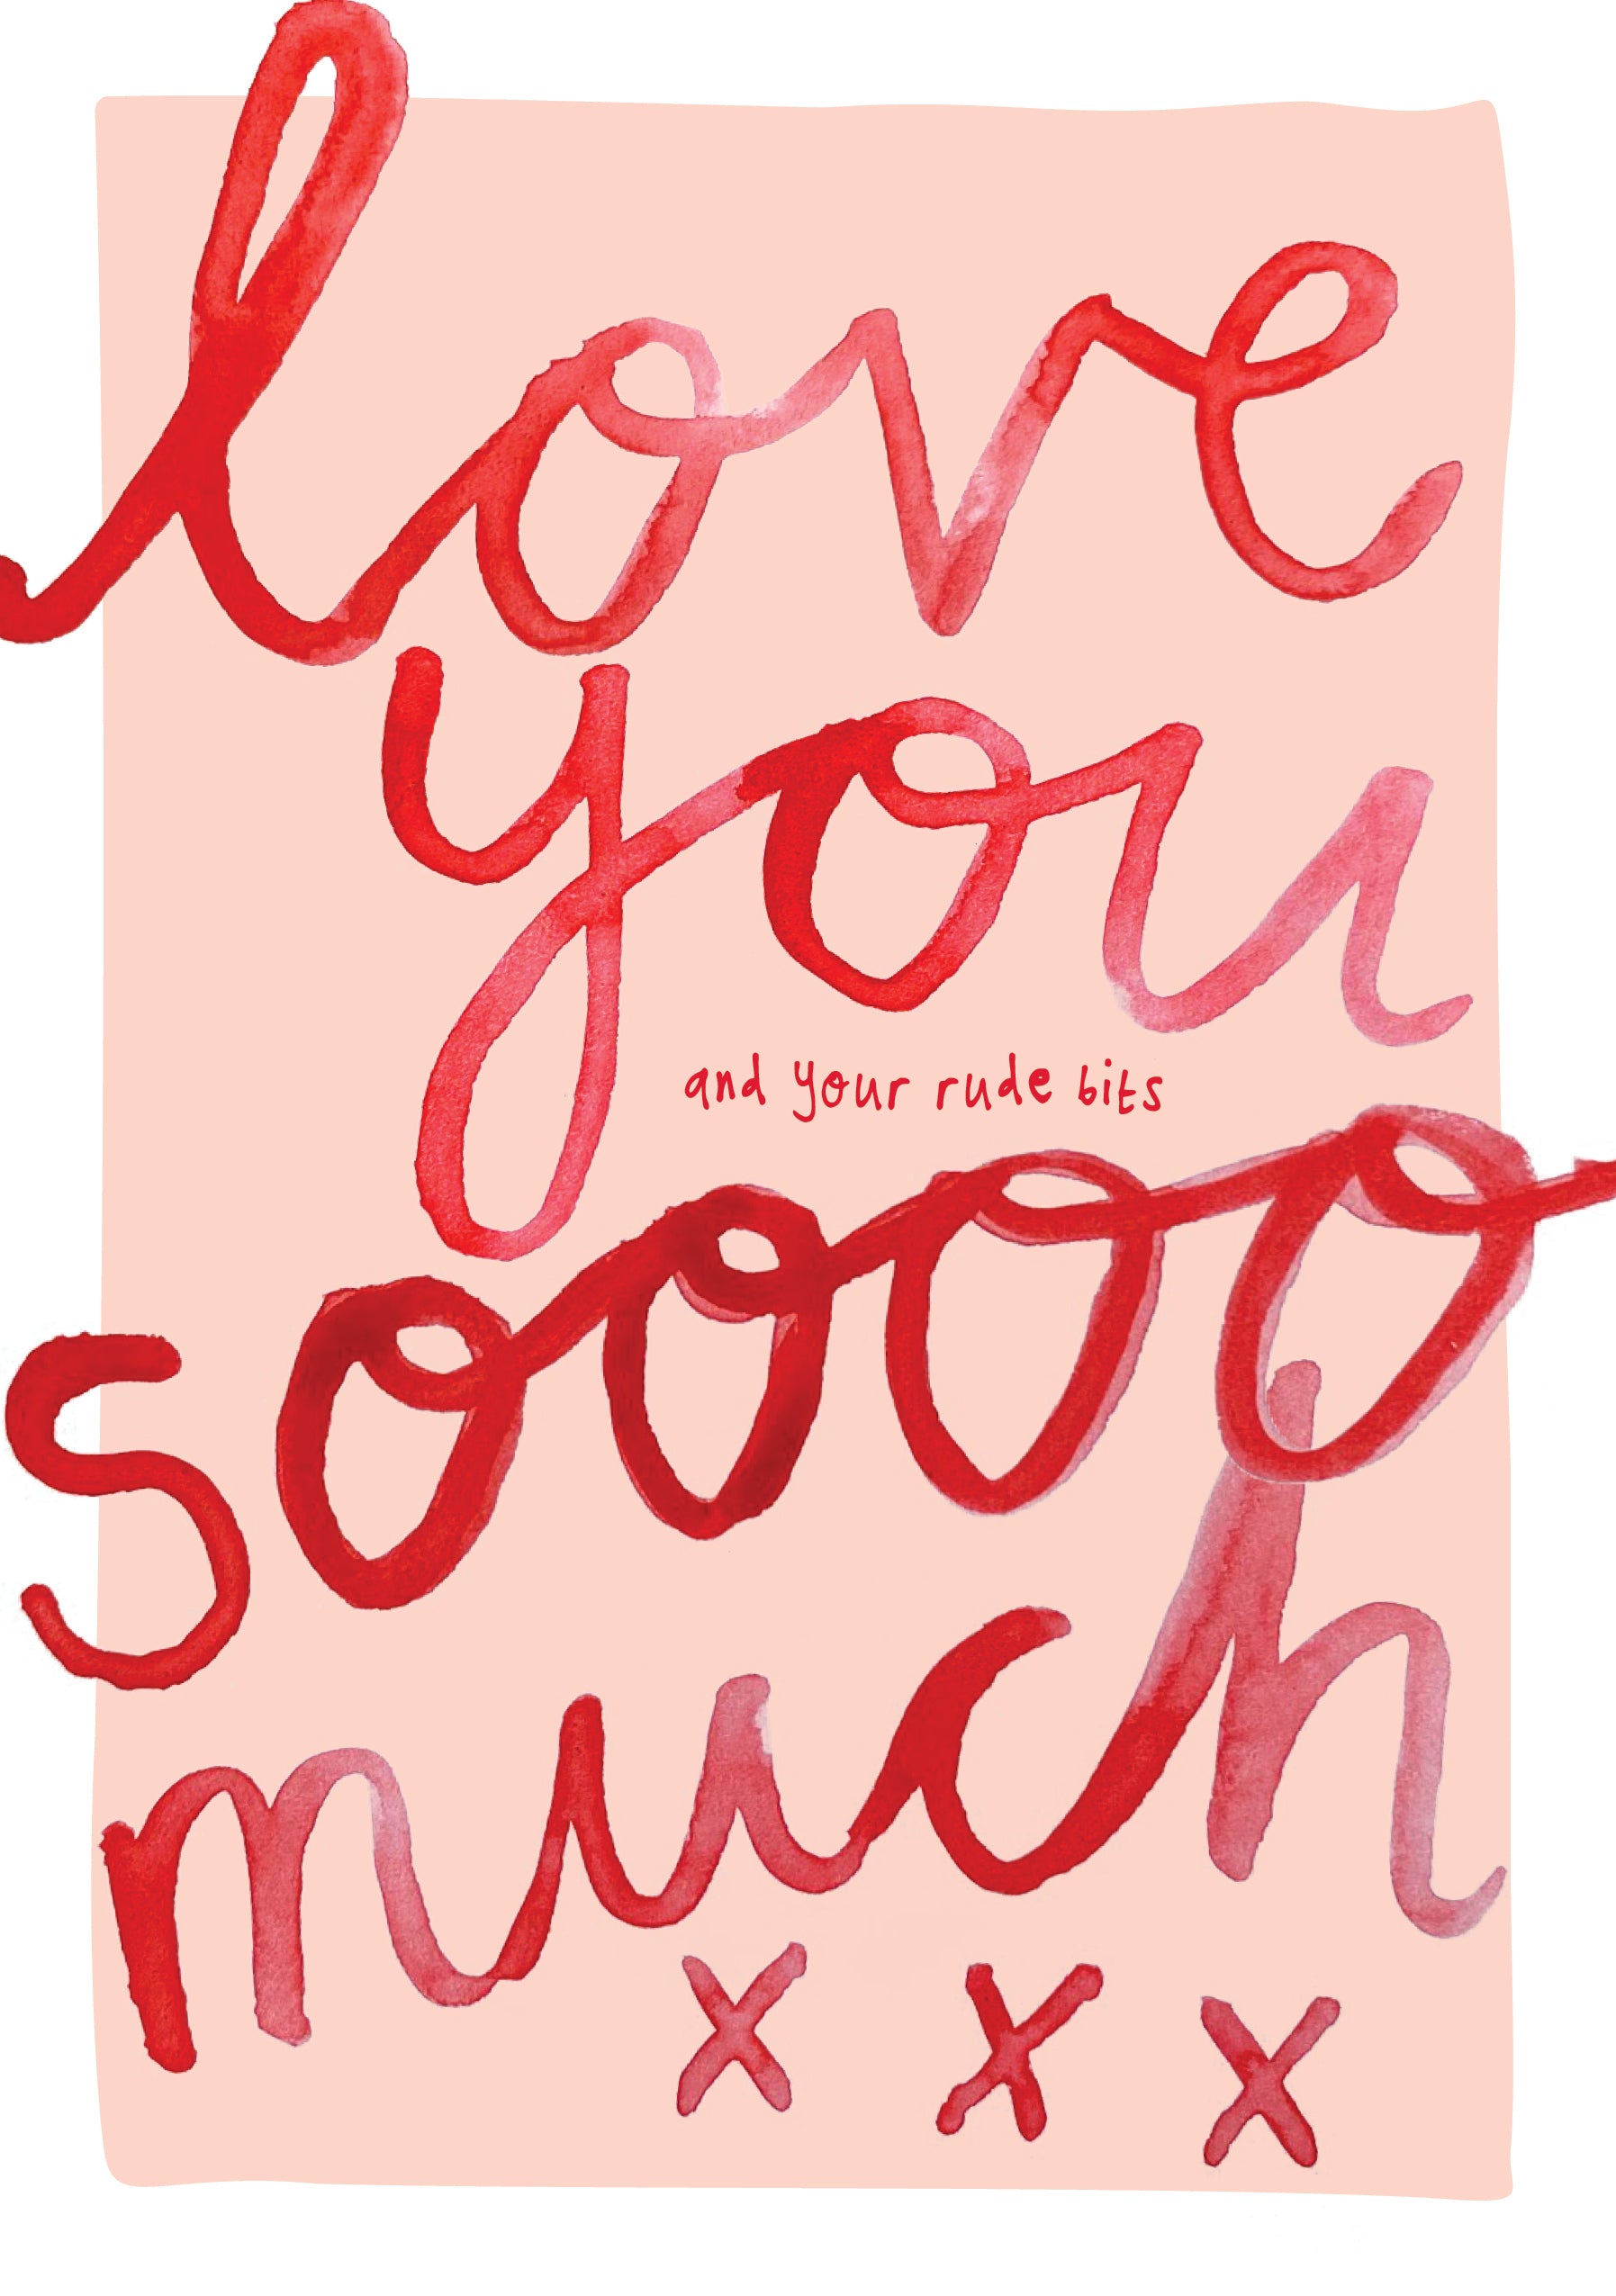 love
you
and your rude bits
soooo
much
x x x